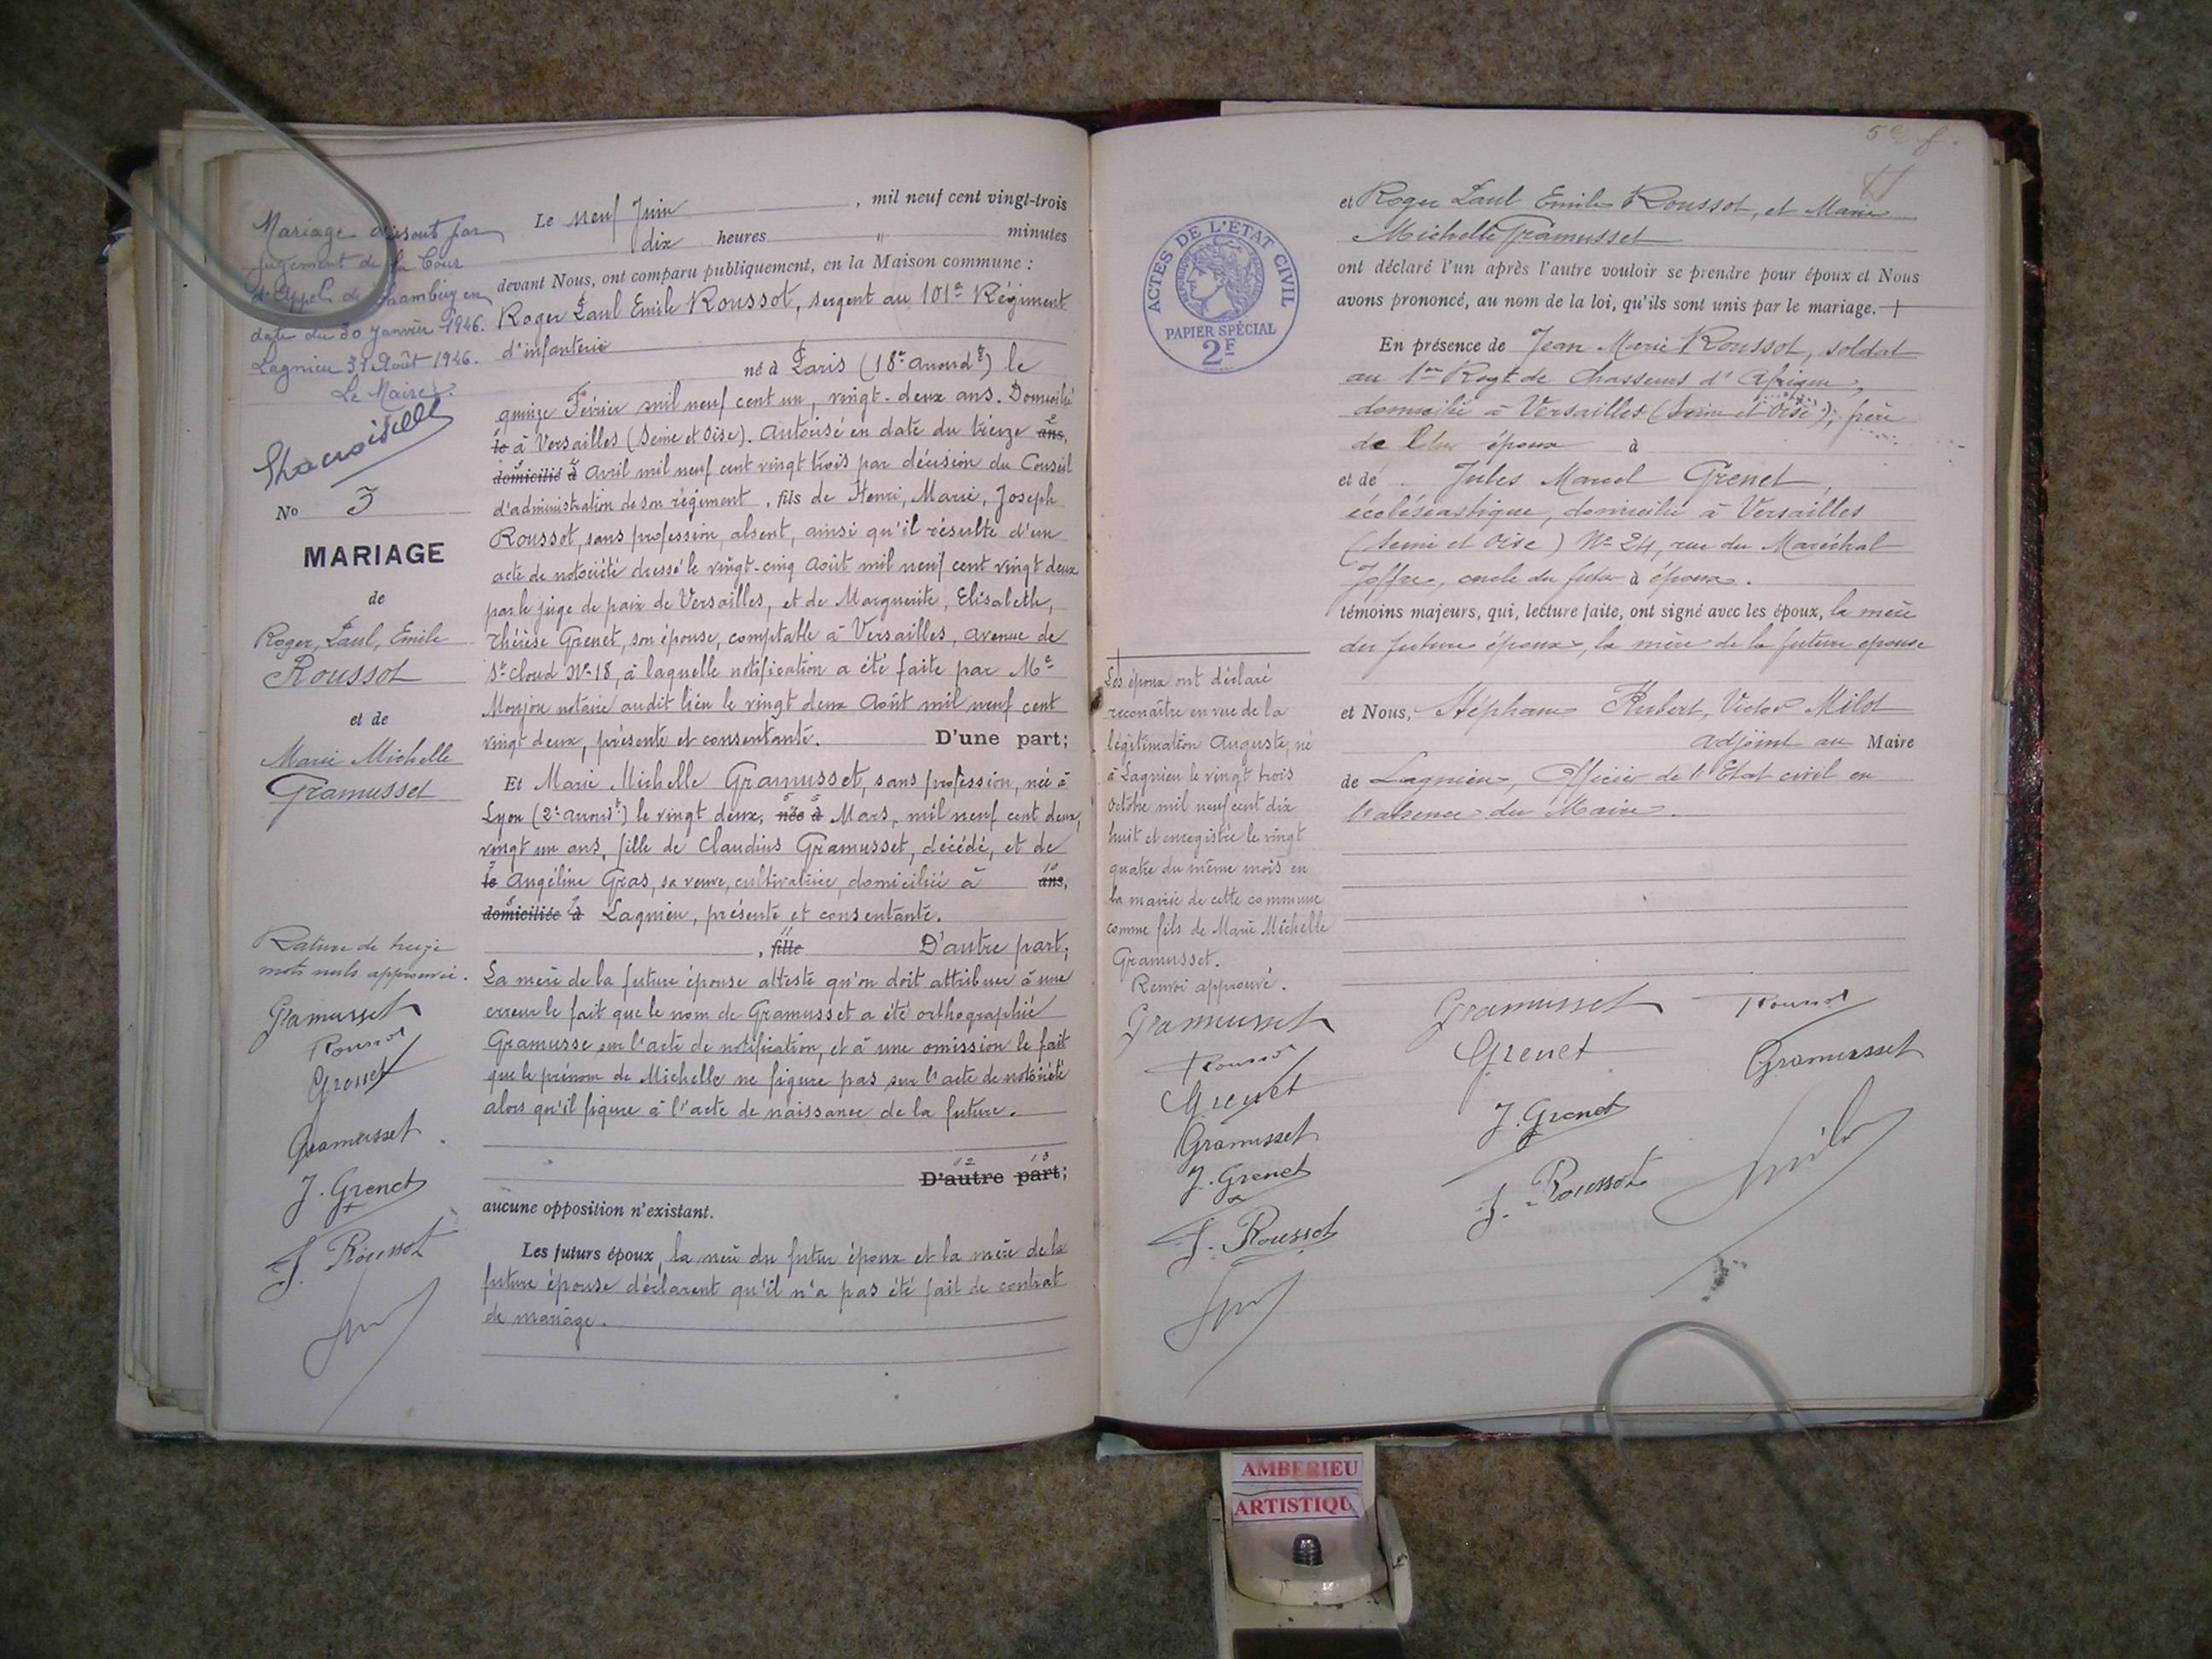 Mariage dissout par
jugement de la Cour
d'Appel de Chambéry en
date du 30 Janvier 1946.
Lagnieu 31 Août 1946.
Le Maire.
No 3
MARIAGE
de
Roger, Paul, Emile
Roussot
et de
Marie Michelle
Gramusset
Rature de treize
mots nuls approuvée.
Gramusset
Roussot
Grenet
Gramusset
J. Grenet
J. Roussot
Le neuf Juin , mil neuf cent vingt-trois
dix heures " minutes
devant Nous, ont comparu publiquement, en la Maison commune :
Roger Paul Emile Roussot, sergent au 101e Régiment
d'infanterie
né à Paris (18e arrondt) le
quinze Février mil neuf cent un, vingt-deux ans. Domicilié
le à Versailles (Seine et Oise). Autorisé en date du treize ans,
domicilié à Avril mil neuf cent vingt trois par décision du Conseil
d'administration de son régiment, fils de Henri, Marie, Joseph
Roussot, sans profession, absent, ainsi qu'il résulte d'un
acte de notoriété dressé le vingt-cinq Août mil neuf cent vingt deux
par le juge de paix de Versailles, et de Marguerite, Elisabeth,
Thérèse Grenet, son épouse, comptable à Versailles, avenue de
St Cloud No 18, à laquelle notification a été faite par Me
notaire audit lieu le vingt deux Août mil neuf cent
vingt deux, présente et consentante. D'une part;
Et Marie Michelle Gramusset, sans profession, née à
Lyon (2e arrondt) le vingt deux, née à Mars, mil neuf cent deux,
vingt un ans, fille de Claudius Gramusset, décédé, et de
le Angéline Gras, sa veuve, cultivatrice, domiciliée à ans,
domiciliée à Lagnieu, présente et consentante.
, fille D'autre part;
La mère de la future épouse atteste qu'on doit attribuer à une
erreur le fait que le nom de Gramusset a été orthographié
Gramusse sur l'acte de notification, et à une omission le fait
que le prénom de Michelle ne figure pas sur l'acte de notoriété
alors qu'il figure à l'acte de naissance de la future.
D'autre part;
aucune opposition n'existant.
Les futurs époux, la mère du futur époux et la mère de la
future épouse déclarent qu'il n'a pas été fait de contrat
de mariage.
ACTES DE L'ÉTAT CIVIL
PAPIER SPÉCIAL
2F
Les époux ont déclaré
reconaître en vue de la
légitimation Auguste, né
à Lagnieu le vingt trois
Octobre mil neuf cent dix
huit et enregistré le vingt
quatre du même mois en
la mairie de cette commune
comme fils de Marie Michelle
Gramusset.
Renvoi approuvé.
Gramusset
Roussot
Grenet
Gramusset
J. Grenet
J. Roussot
et Roger Paul Emile Roussot, et Marie
Michelle Gramusset
ont déclaré l'un après l'autre vouloir se prendre pour époux et Nous
avons prononcé, au nom de la loi, qu'ils sont unis par le mariage. +
En présence de Jean Marie Roussot, soldat
au 1er Regt de Chasseurs d'Afrique,
domicilié à Versailles (Seine et Oise), frère
de époux à
et de Jules Marcel Grenet,
écclésiastique, domicilié à Versailles
(Seine et Oise) No 24, rue du Maréchal
Joffre, oncle du futur à époux.
témoins majeurs, qui, lecture faite, ont signé avec les époux, la mère
du future époux, la mère de la future épouse
et Nous, Stéphane Hubert, Victor Milot
adjoint au Maire
de Lagnieu, Officier de l'Etat civil en
l'absence du Maire.
Gramusset Roussot
Grenet Gramusset
J. Grenet
J. Roussot
AMBERIEU
ARTISTIQU